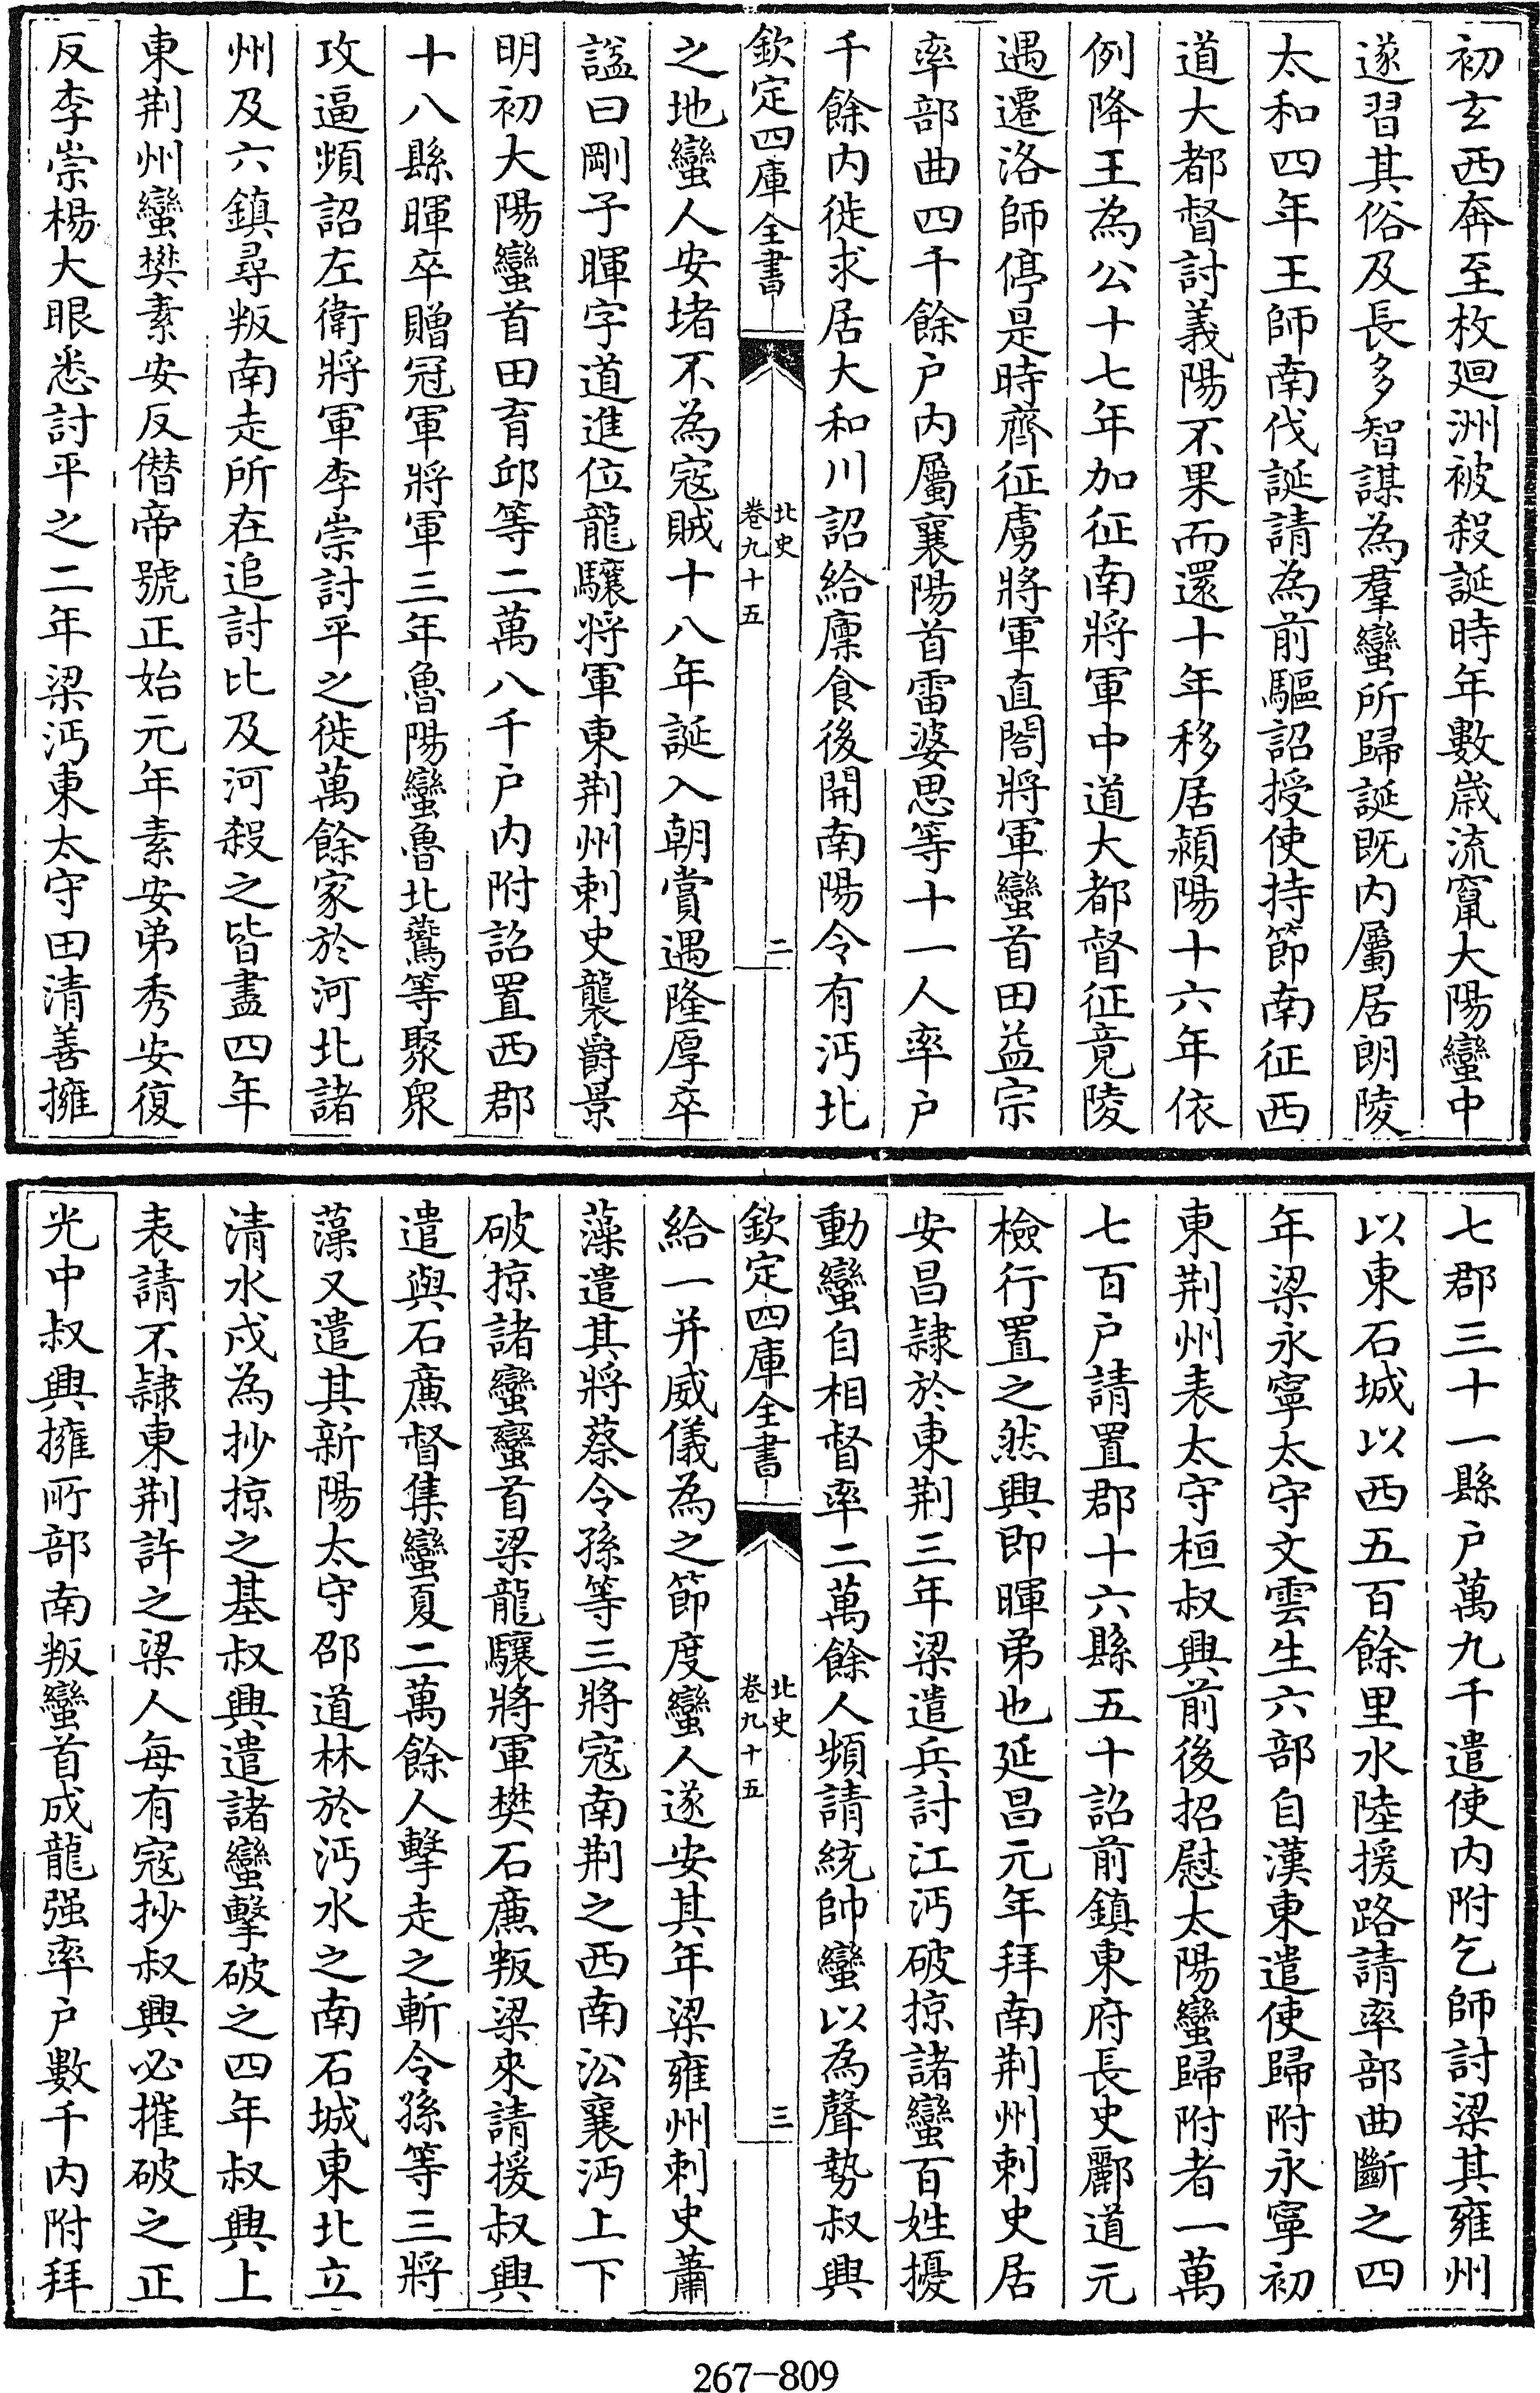 初玄西奔至枚廻洲被殺誕時年數歳流竄大陽蠻中
遂習其俗及長多智謀為羣蠻所歸誕既内屬居朗陵
太和四年王師南伐誕請為前驅詔授使持節南征西
道大都督討義陽不果而還十年移居潁陽十六年依
例降王為公十七年加征南將軍中道大都督征竟陵
遇遷洛師停是時齊征虜將軍直閤將軍蠻首田益宗
率部曲四千餘户内屬襄陽首雷婆思等十一人率户
千餘内徙求居大和川詔給廪食後開南陽令有沔北
欽定四庫全書
北史
卷九十五
二
之地蠻人安堵不為寇賊十八年誕入朝賞遇隆厚卒
諡曰剛子暉字道進位龍驤將軍東荆州刺史襲爵景
明初大陽蠻首田育邱等二萬八千户内附詔置西郡
十八縣暉卒贈冠軍將軍三年魯陽蠻魯北鷰等聚衆
攻逼頻詔左衛將軍李崇討平之徙萬餘家於河北諸
州及六鎮尋叛南走所在追討比及河殺之皆盡四年
東荆州蠻樊素安反僭帝號正始元年素安弟秀安復
反李崇楊大眼悉討平之二年梁沔東太守田清善擁
七郡三十一縣户萬九千遣使内附乞師討梁其雍州
以東石城以西五百餘里水陸援路請率部曲斷之四
年梁永寧太守文雲生六部自漢東遣使歸附永寧初
東荆州表太守桓叔興前後招慰太陽蠻歸附者一萬
七百户請置郡十六縣五十詔前鎮東府長史酈道元
檢行置之然興即暉弟也延昌元年拜南荆州刺史居
安昌隷於東荆三年梁遣兵討江沔破掠諸蠻百姓擾
動蠻自相督率二萬餘人頻請統帥蠻以為聲勢叔興
欽定四庫全書
北史
卷九十五
三
給一并威儀為之節度蠻人遂安其年梁雍州刺史蕭
藻遣其將蔡令孫等三將寇南荆之西南沿襄沔上下
破掠諸蠻蠻首梁龍驤將軍樊石廉叛梁來請援叔興
遣與石廉督集蠻夏二萬餘人擊走之斬令孫等三將
藻又遣其新陽太守邵道林於沔水之南石城東北立
清水戍為抄掠之基叔興遣諸蠻擊破之四年叔興上
表請不隷東荆許之梁人每有寇抄叔興必摧破之正
光中叔興擁所部南叛蠻首成龍强率户數千内附拜
267-809